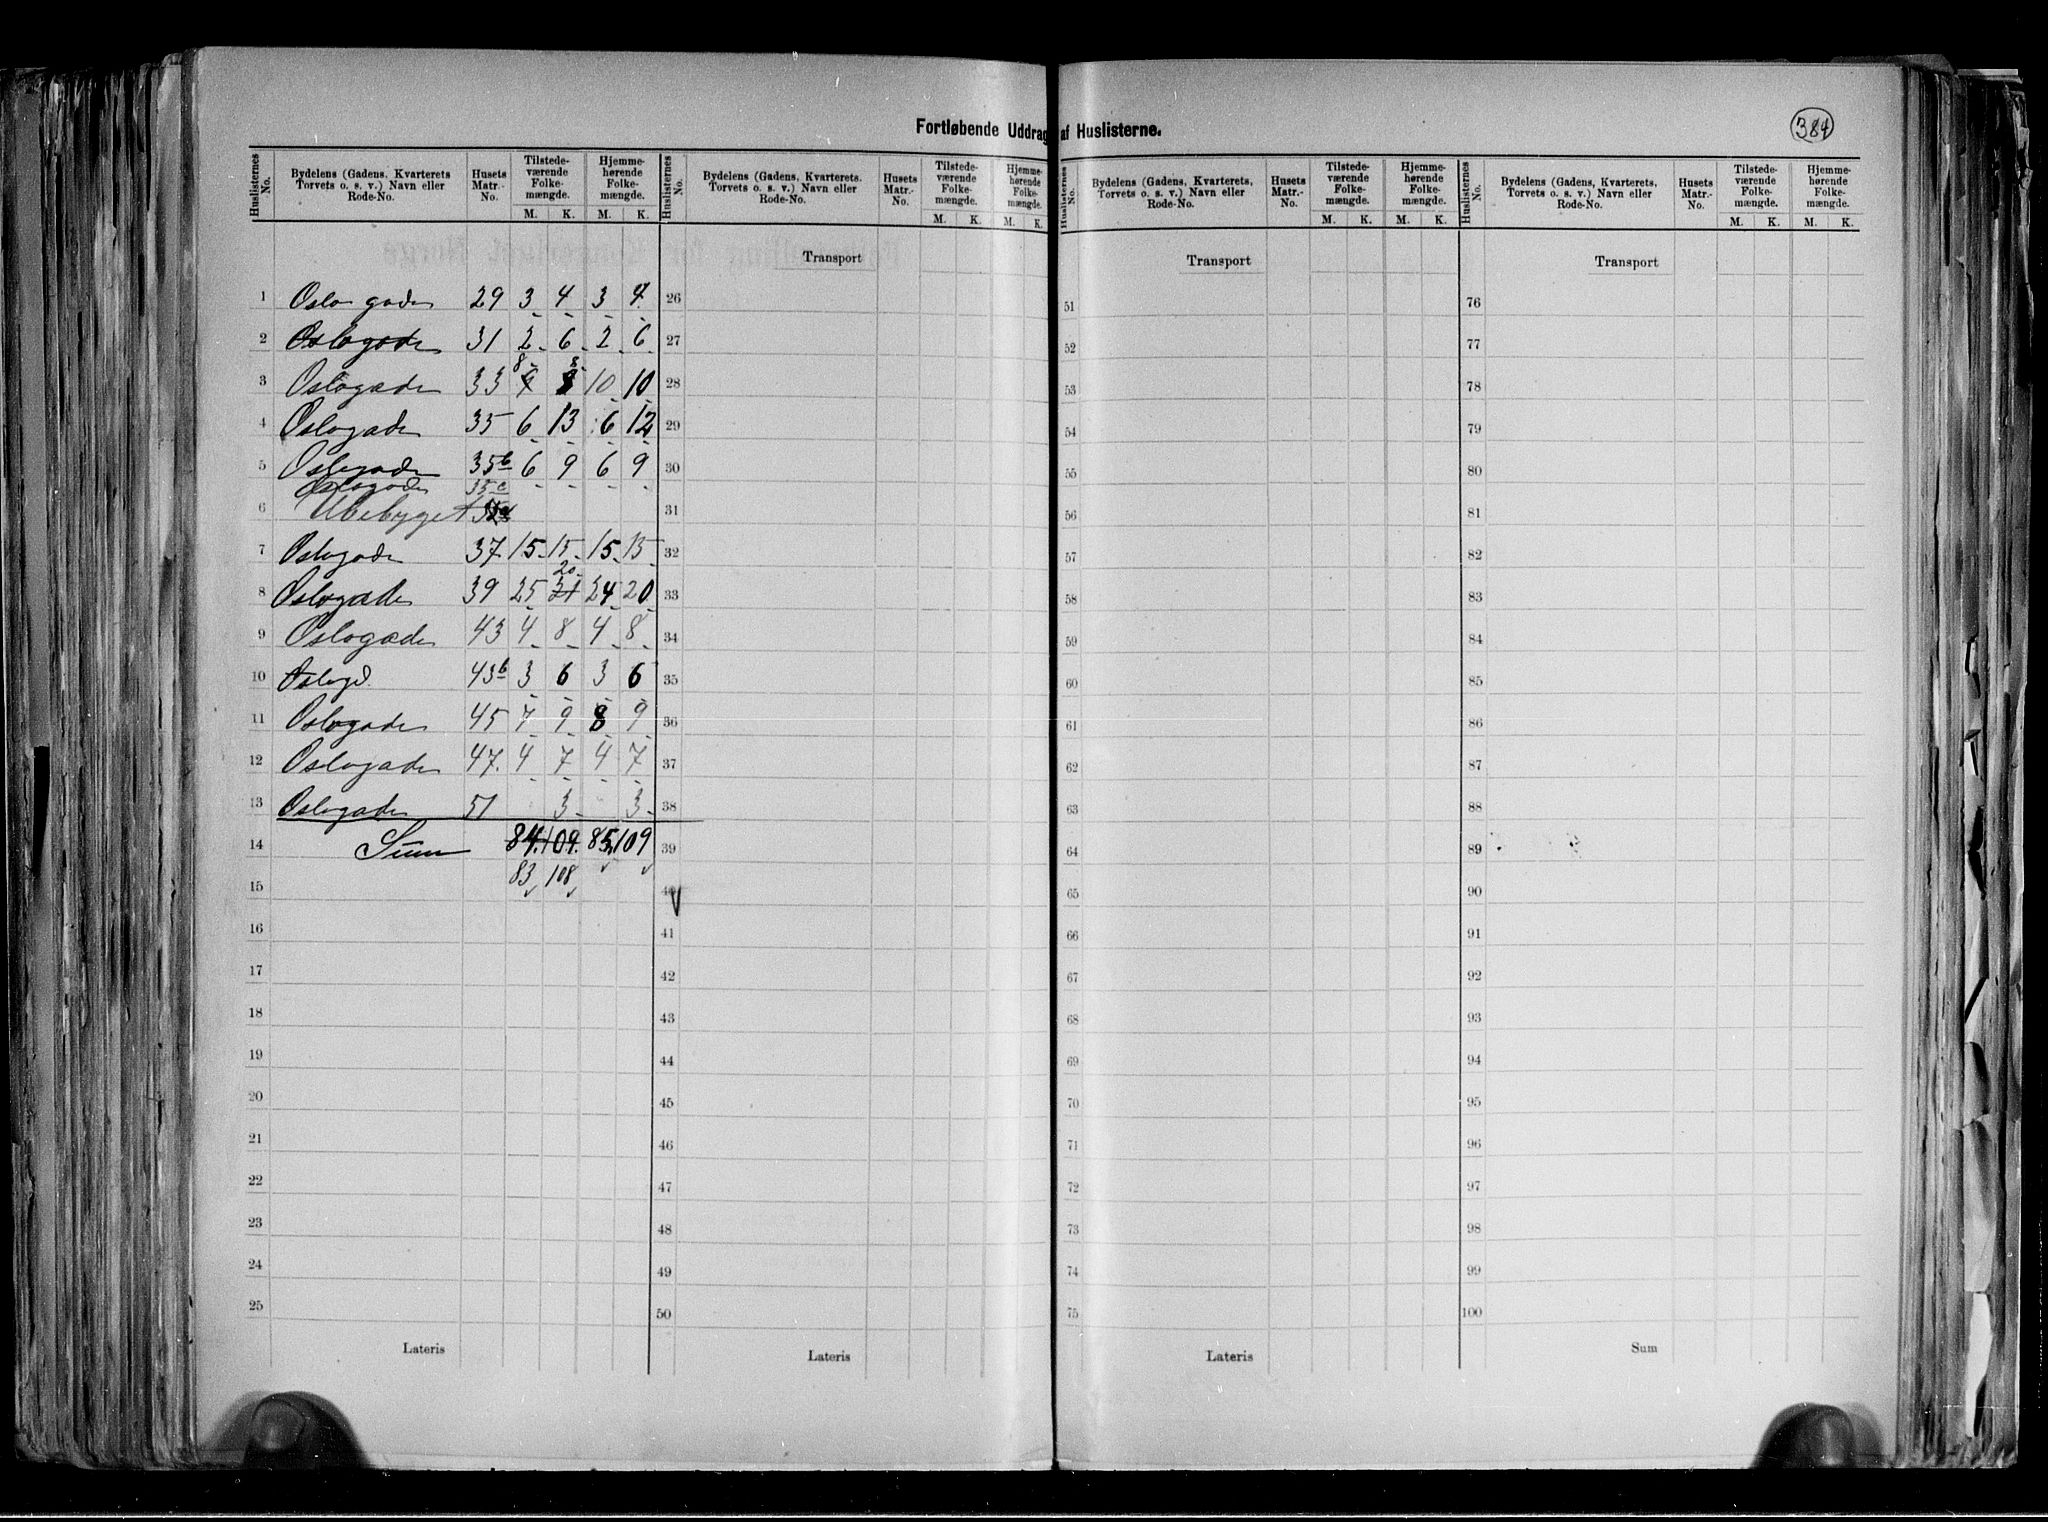 384
Fortløbende Uddrag af Huslisterne.
Huslisternes No. | Bydelens (Gadens, Kvarterets, Torvets o. s. v.) Navn eller Rode-No. | Husets Matr.-No. | Tilstede-værende Folke-mængde. M. K. | Hjemme-hørende Folke-mængde. M. K.
1 Oslo gade 29 3 4 3 4
2 Oslogade 31 2 6 2 6
8 3
3 Oslogade 33 10 10
4 Oslogade 35 6 13 6 12
5 Oslogade 35b 6 9 6 9
Oslogade 35c
6 Ubebygget
7 Oslogade 37 15 15 15 15
20
8 Oslogade 39 25 21 24 20
9 Oslogade 43 4 8 4 8
10 Oslogd. 43b 3 6 3 6
11 Oslogade 45 7 9 8 9
12 Oslogade 47. 4 7 4 7
13 Oslogade 51 3 3
14 Sum 84. 109. 85, 109
15 83 108
16
17
18
19
20
21
22
23
24
25
Lateris
Huslisternes No. | Bydelens (Gadens, Kvarterets, Torvets o. s. v.) Navn eller Rode-No. | Husets Matr.-No. | Tilstede-værende Folke-mængde. M. K. | Hjemme-hørende Folke-mængde. M. K.
Transport
26
27
28
29
30
31
32
33
34
35
36
37
38
39
40
41
42
43
44
45
46
47
48
49
50
Lateris
Huslisternes No. | Bydelens (Gadens, Kvarterets, Torvets o. s. v.) Navn eller Rode-No. | Husets Matr.-No. | Tilstede-værende Folke-mængde. M. K. | Hjemme-hørende Folke-mængde. M. K.
Transport
51
52
53
54
55
56
57
58
59
60
61
62
63
64
65
66
67
68
69
70
71
72
73
74
75
Lateris
Huslisternes No. | Bydelens (Gadens, Kvarterets, Torvets o. s. v.) Navn eller Rode-No. | Husets Matr.-No. | Tilstede-værende Folke-mængde. M. K. | Hjemme-hørende Folke-mængde. M. K.
Transport
76
77
78
79
80
81
82
83
84
85
86
87
88
89
90
91
92
93
94
95
96
97
98
99
100
Sum